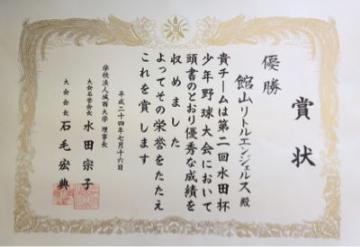 賞状
優勝
館山リトルエンジェルス殿
貴チームは第二回水田杯
少年野球大会において
頭書のとおり優秀な成績を
収めました
よってその栄誉をたたえ
これを賞します
平成二十四年七月十六日
学校法人城西大学 理事長
大会名誉会長 水田宗子
大会会長 石毛宏典